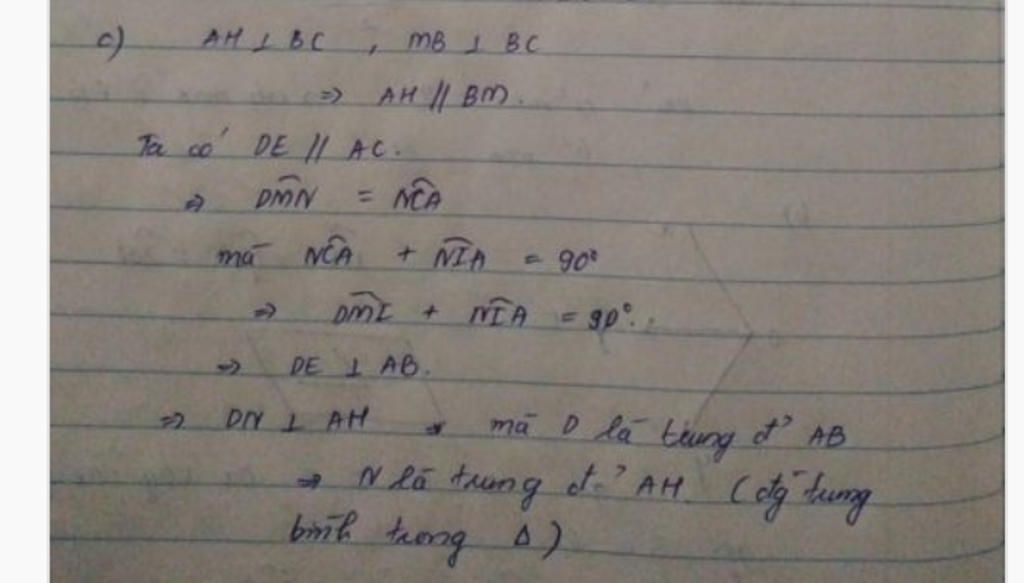 c) AH ⊥ BC , MB ⊥ BC
=> AH // BM.
Ta có DE // AC.
=> DM̂N = NĈA
mà NĈA + NÎA = 90°
=> DM̂I + NÎA = 90°.
=> DE ⊥ AB.
=> DN ⊥ AH mà D là trung đ' AB
=> N là trung đ' AH. (đg trung
bình trong Δ)